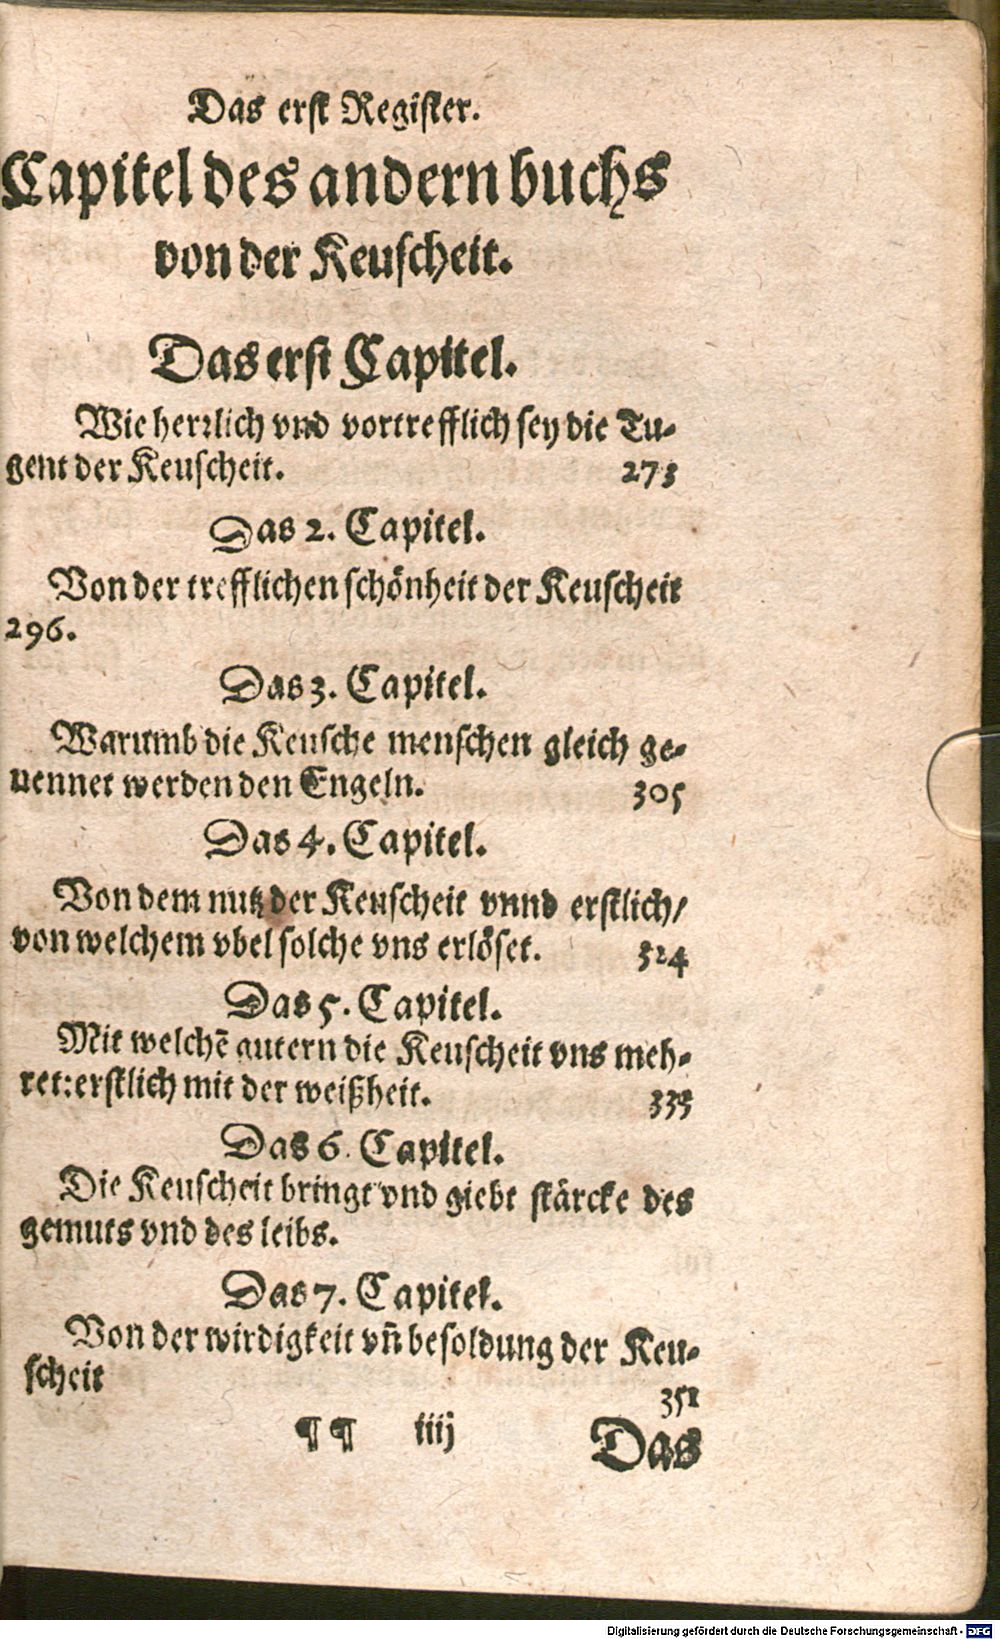 Das erst Register.
Capitel des andern buchs
von der Keuscheit.
Das erst Capitel.
Wie herrlich vnd vortrefflich sey die Tu-
gent der Keuscheit. 273
Das 2. Capitel.
Von der trefflichen schönheit der Keuscheit
296.
Das 3. Capitel.
Warumb die Keusche menschen gleich ge-
nennet werden den Engeln. 305
Das 4. Capitel.
Von dem nutz der Keuscheit vnnd erstlich/
von welchem vbel solche vns erlöset. 324
Das 5. Capitel.
Mit welchē gutern die Keuscheit vns meh-
ret: erstlich mit der weißheit. 333
Das 6. Capitel.
Die Keuscheit bringt vnd giebt stärcke des
gemuts vnd des leibs.
Das 7. Capitel.
Von der wirdigkeit vn̄ besoldung der Keu-
scheit 351
¶ ¶ iiij Das
Digitalisierung gefördert durch die Deutsche Forschungsgemeinschaft - DFG